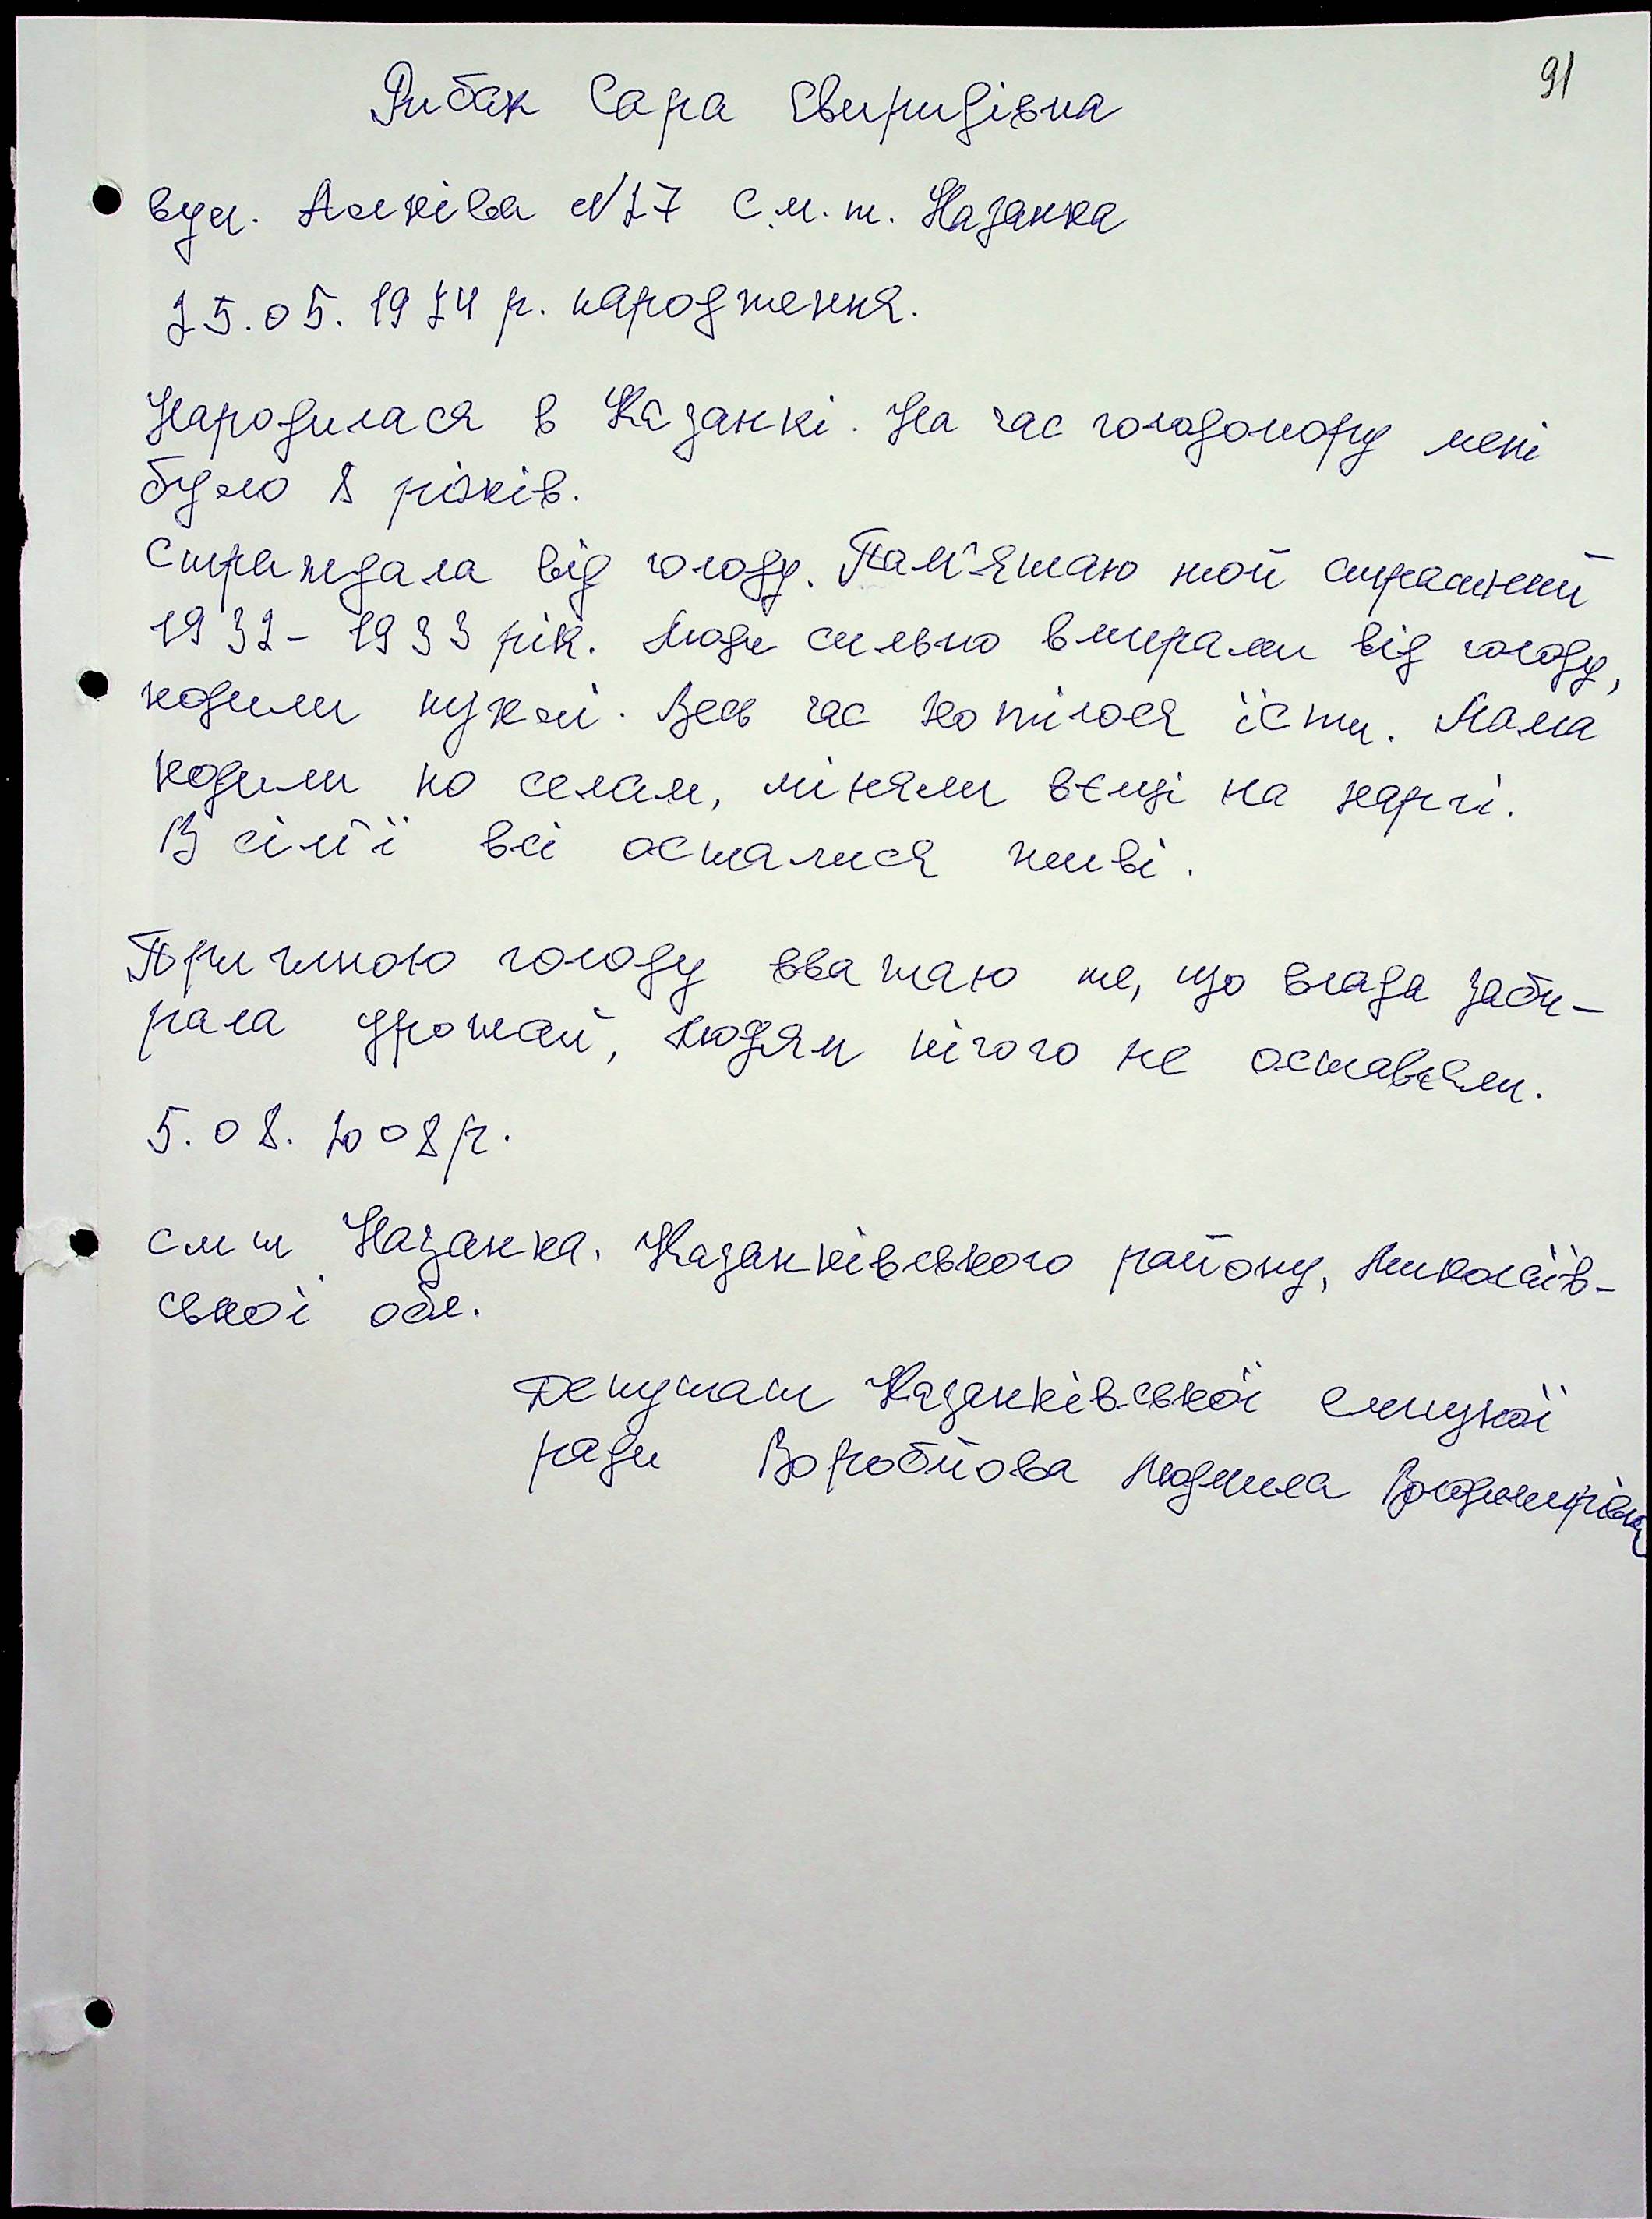 91
Рибак Сара Свиридівна
вул. №27 с.м.т. Казанка
25.05.1924 р. народження.
Народилася в Казанкі. На час голодомору мені
було 8 років.
Страждала від голоду. Пам'ятаю той страшний
1932-1933 рік. Люди сильно вмирали від голоду,
ходили пухлі. Весь час хотілося їсти. Мама
ходили по селам, міняли вєщі на харчі.
В сім'ї всі осталися живі.
Причиною голоду вважаю те, що влада заби-
рала урожай, людям нічого не оставляли.
5.08.2008р.
смт Казанка. Казанківського району, Миколаїв-
ської обл.
Депутат Казанківської селищної
ради Воробйова Людмила Володимирівна